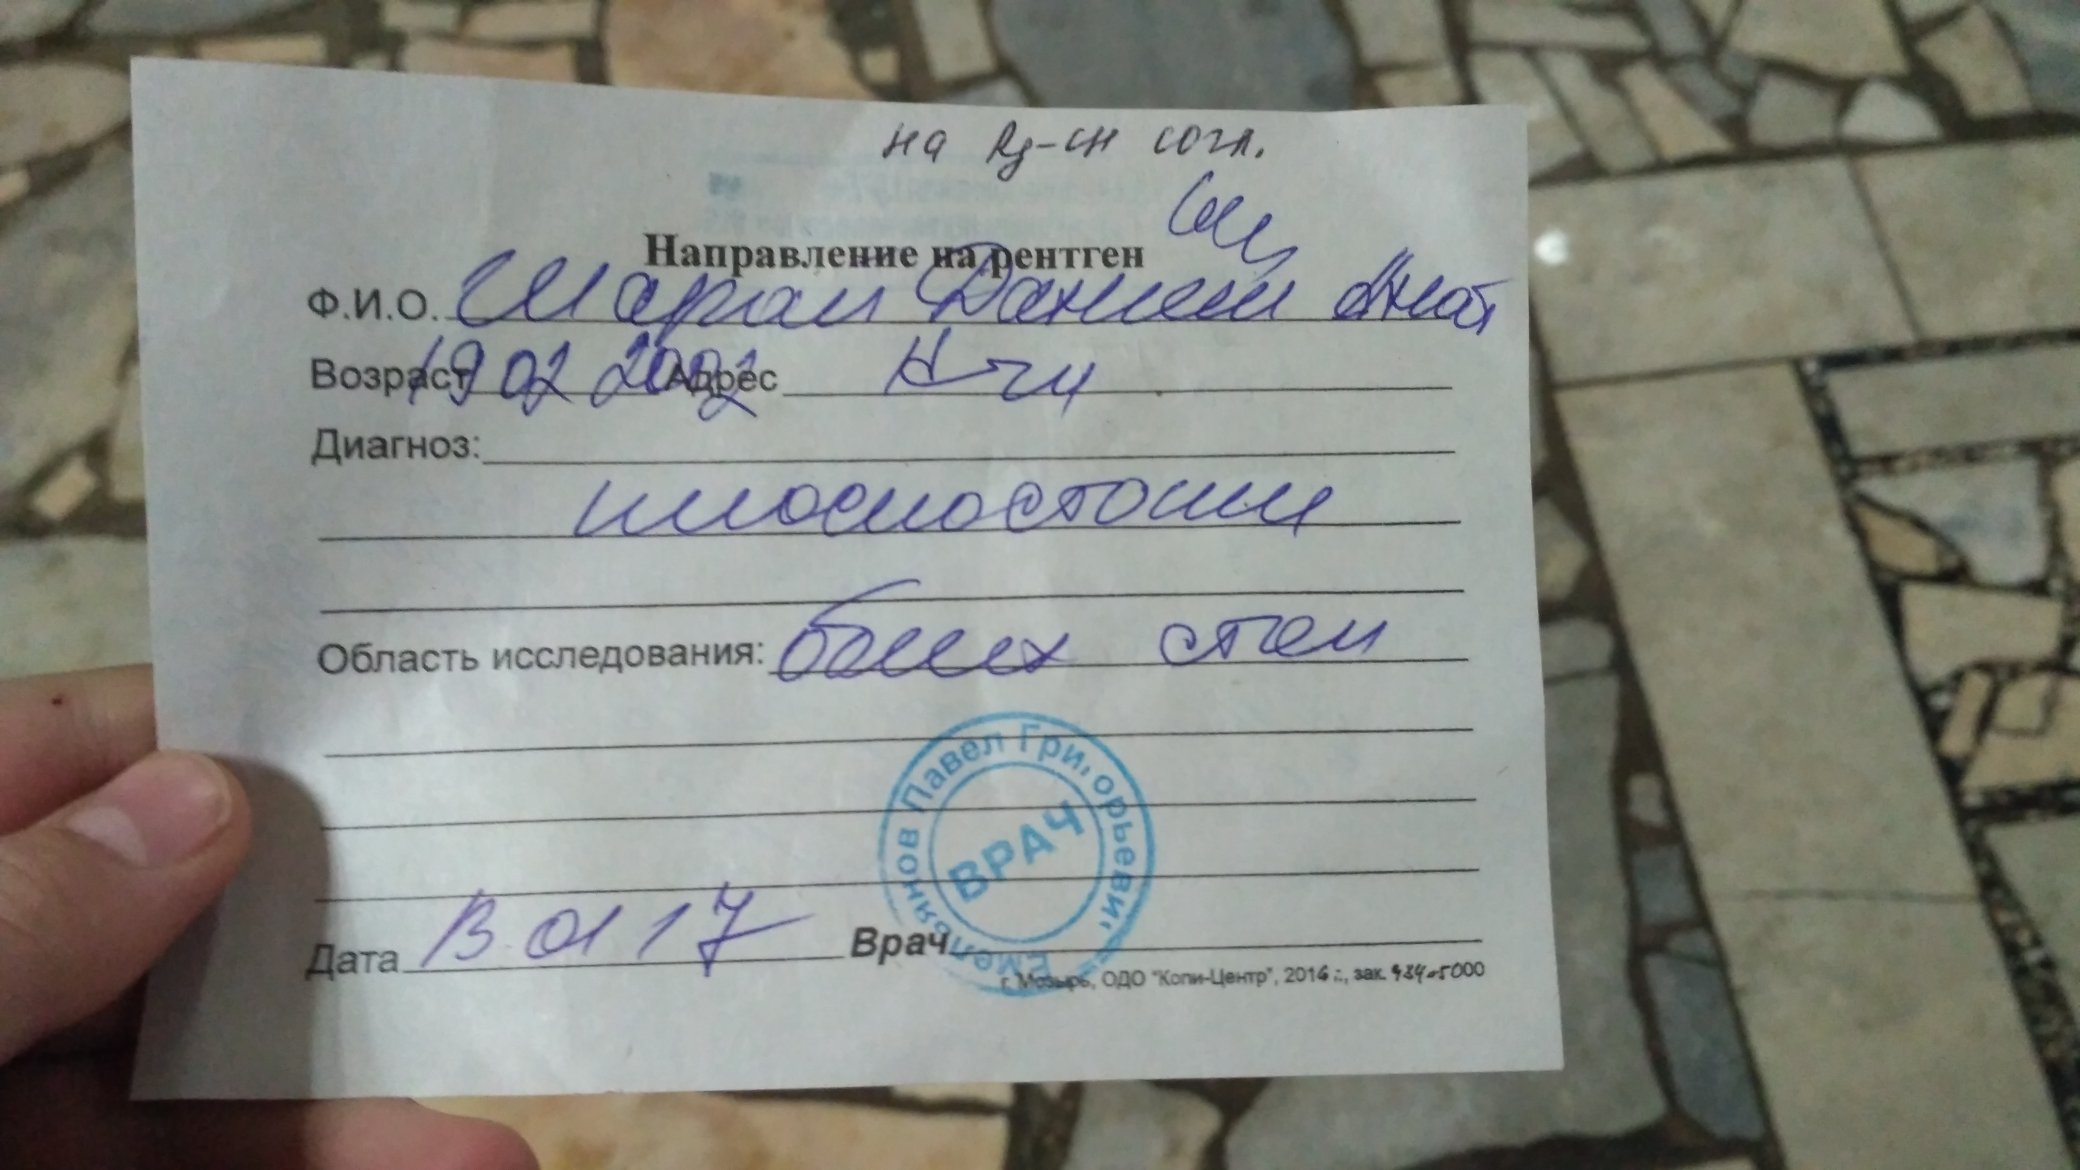 на Rg-сн согл.
Направление на рентген
Ф.И.О. Шаран Даниил Анат
Возраст 19 02 2002 Адрес
Диагноз:
плоскостопие
Область исследования: обеих стоп
Емельянов Павел Григорьевич
ВРАЧ
Дата 13 01 17 Врач
г. Мозырь, ОДО "Копи-Центр", 2016 г., зак.